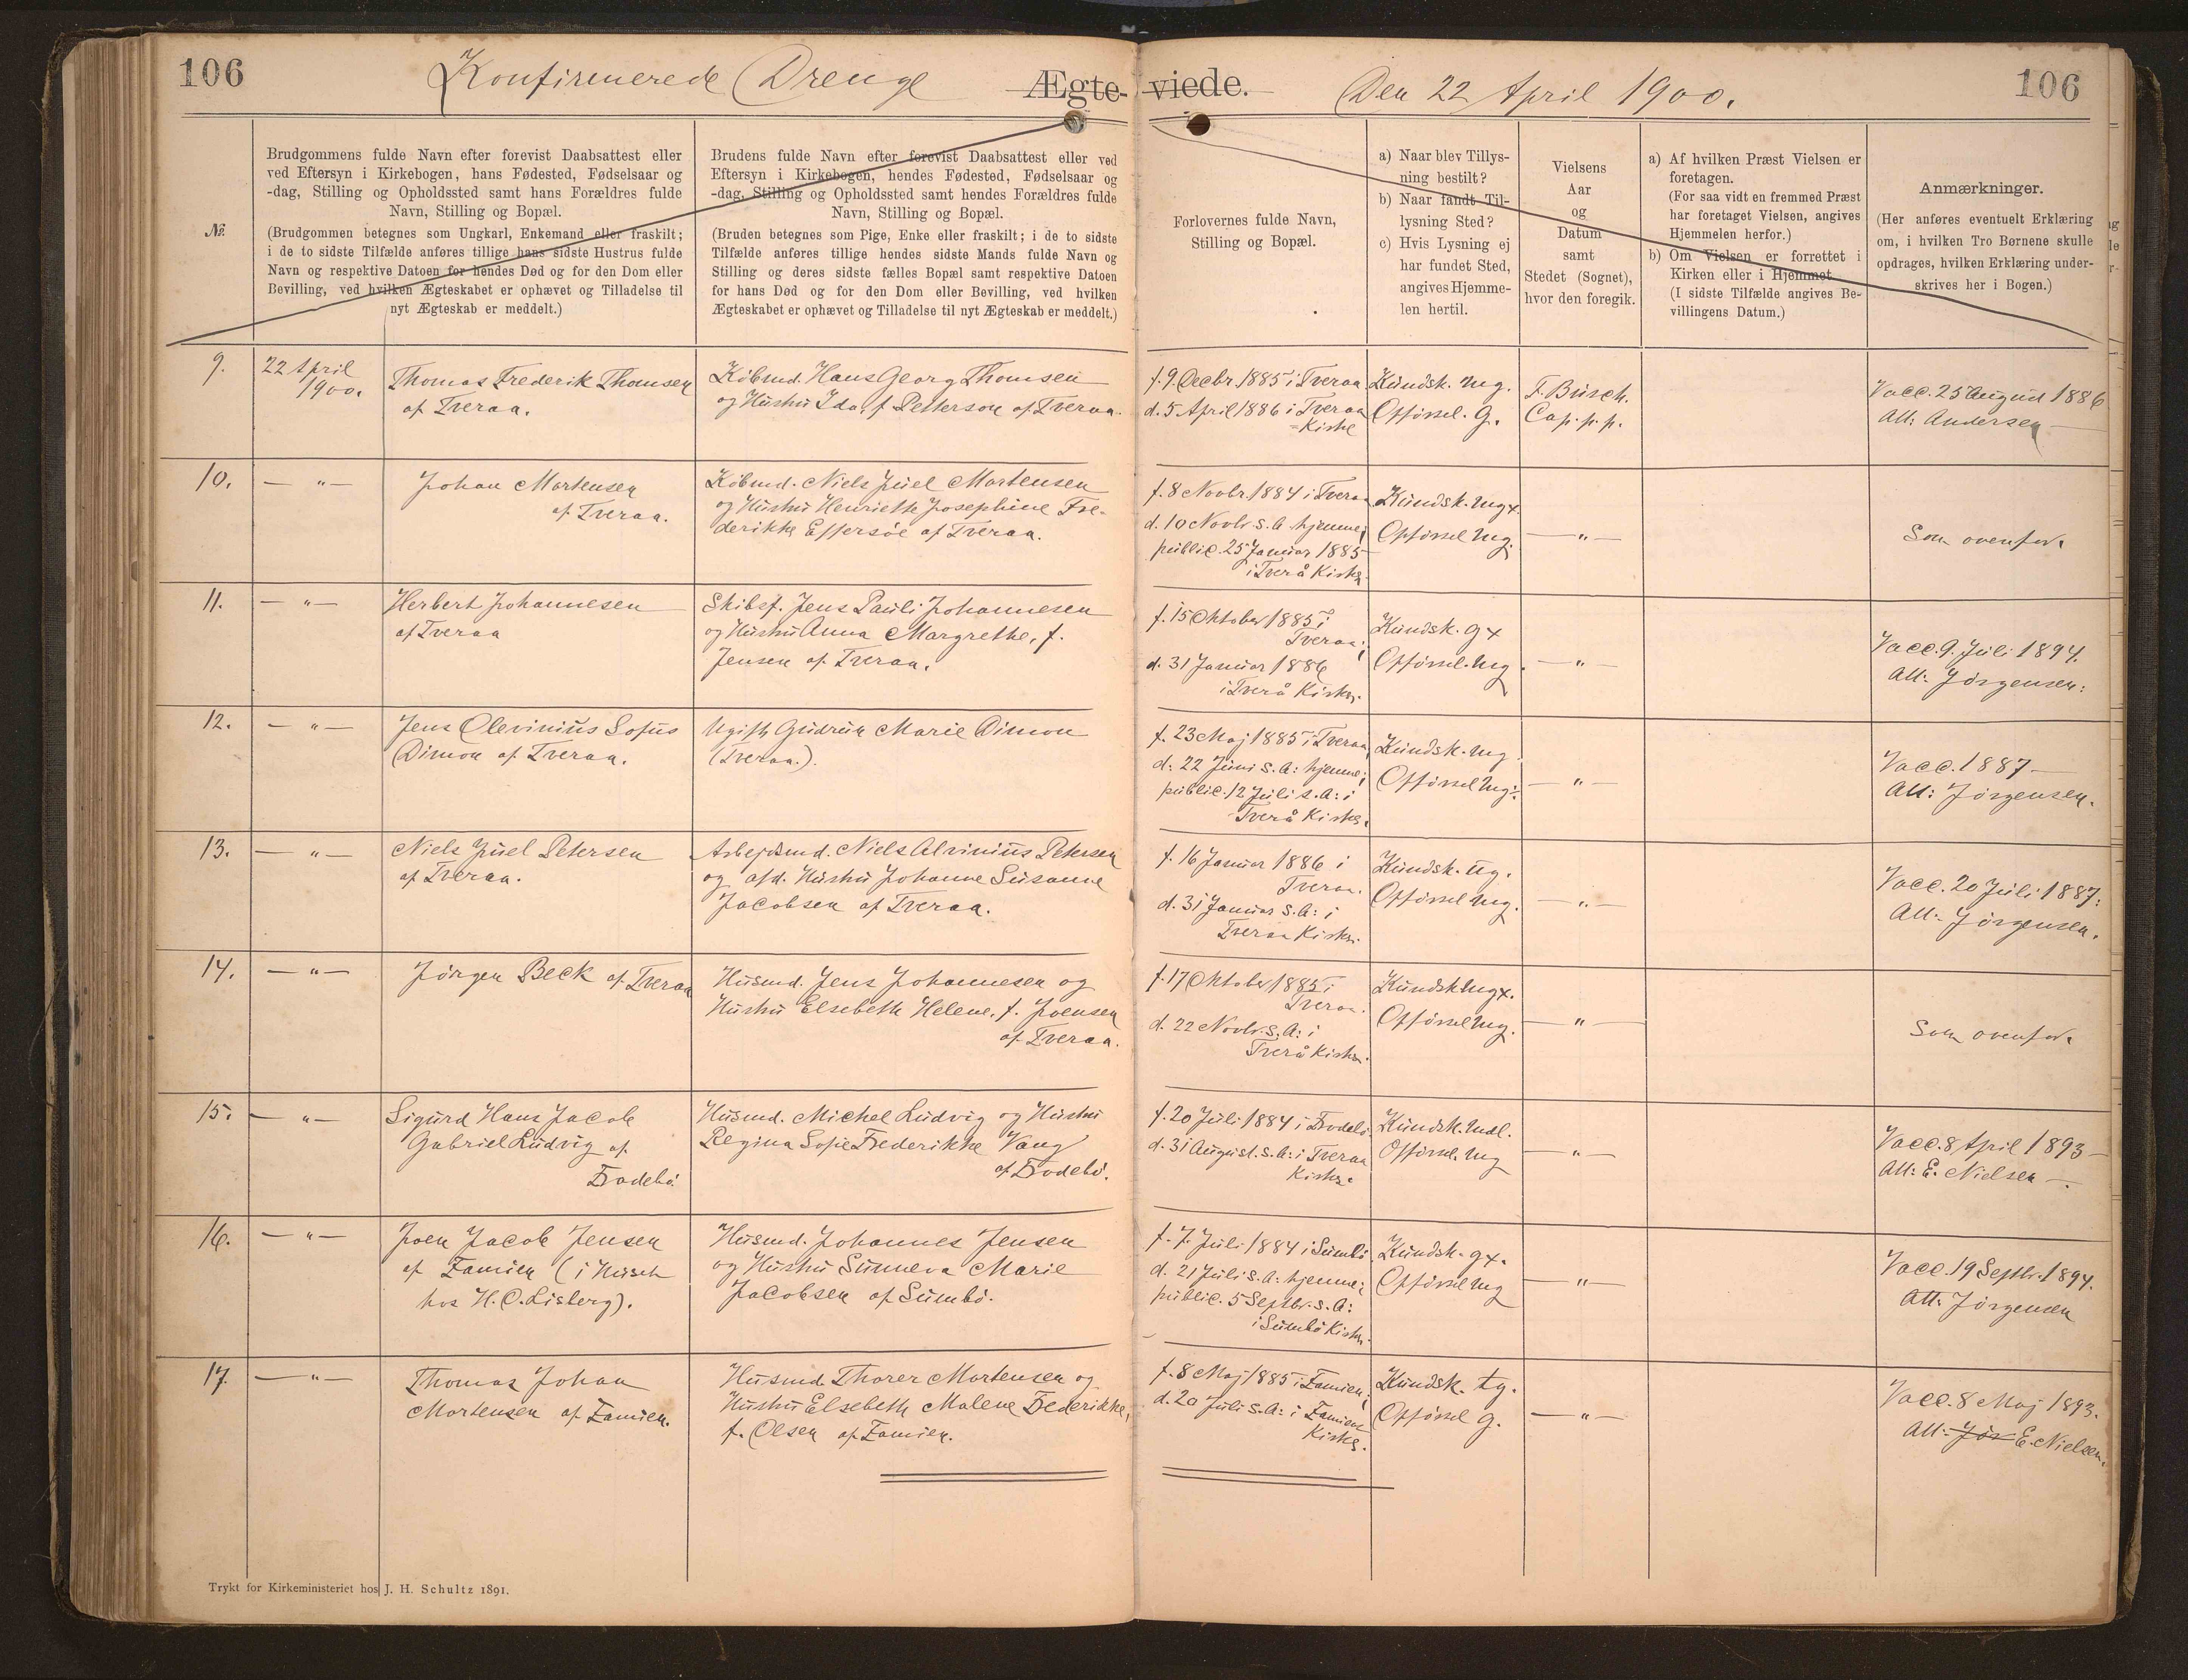 106 Konfirmerede Drenge Ægteviede. Den 22 April 1900. 106
№.
Brudgommens fulde Navn efter forevist Daabsattest eller
ved Eftersyn i Kirkebogen, hans Fødested, Fødselsaar og
-dag, Stilling og Opholdssted samt hans Forældres fulde
Navn, Stilling og Bopæl.
(Brudgommen betegnes som Ungkarl, Enkemand eller fraskilt;
i de to sidste Tilfælde anføres tillige hans sidste Hustrus fulde
Navn og respektive Datoen for hendes Død og for den Dom eller
Bevilling, ved hvilken Ægteskabet er ophævet og Tilladelse til
nyt Ægteskab er meddelt.)
Brudens fulde Navn efter forevist Daabsattest eller ved
Eftersyn i Kirkebogen, hendes Fødested, Fødselsaar og
-dag, Stilling og Opholdssted samt hendes Forældres fulde
Navn, Stilling og Bopæl.
(Bruden betegnes som Pige, Enke eller fraskilt; i de to sidste
Tilfælde anføres tillige hendes sidste Mands fulde Navn og
Stilling og deres sidste fælles Bopæl samt respektive Datoen
for hans Død og for den Dom eller Bevilling, ved hvilken
Ægteskabet er ophævet og Tilladelse til nyt Ægteskab er meddelt.)
Forlovernes fulde Navn,
Stilling og Bopæl.
a) Naar blev Tillys-
ning bestilt?
b) Naar fandt Til-
lysning Sted?
c) Hvis Lysning ej
har fundet Sted,
angives Hjemme-
len hertil.
Vielsens
Aar
og
Datum
samt
Stedet (Sognet),
hvor den foregik.
a) Af hvilken Præst Vielsen er
foretagen.
(For saa vidt en fremmed Præst
har foretaget Vielsen, angives
Hjemmelen herfor.)
b) Om Vielsen er forrettet i
Kirken eller i Hjemmet.
(I sidste Tilfælde angives Be-
villingens Datum.)
Anmærkninger.
(Her anføres eventuelt Erklæring
om, i hvilken Tro Børnene skulle
opdrages, hvilken Erklæring under-
skrives her i Bogen.)
9.
22 April
1900.
Thomas Frederik Thomsen
af Tveraa.
Købmd. Hans Georg Thomsen
og Hustru Ida, f. Petterson af Tveraa.
f. 9. Decbr. 1885 i Tveraa
d. 5 April 1886 i Tveraa
=Kirke
Kundsk. mg.
Opførsel. g.
F. Busch.
Cap. p. p.
Vacc. 25 August 1886
Att: Andersen
10.
— " —
Johan Mortensen
af Tveraa.
Købmd. Niels Juel Mortensen
og Hustru Henriette Josephine Fre-
derikke Effersøe af Tveraa.
f. 8 Novbr. 1884 i Tveraa
d. 10 Novbr. s. A. hjemme;
public. 25 Januar 1885
i Tverå Kirke.
Kundsk. mg x
Opførsel mg.
— " —
Som ovenfor.
11.
— " —
Herbert Johannesen
af Tveraa
Skibsf. Jens Pauli Johannesen
og Hustru Anna Margrethe, f.
Jensen af Tveraa.
f. 15 Oktober 1885 i
Tveraa;
d. 31 Januar 1886
i Tverå Kirke.
Kundsk. g x
Opførsel. mg.
— " —
Vacc. 9. Juli 1894.
Att: Jörgensen:
12.
— " —
Jens Olevinius Sofus
Dimon af Tveraa.
Ugift Gudrun Marie Dimon
(Tveraa.).
f. 23 Maj 1885 i Tveraa
d: 22 Juni s. A: hjemme;
public. 12 Juli s. A: i
Tverå Kirke.
Kundsk. mg
Opførsel mg÷.
— " —
Vacc. 1887 —
Att: Jörgensen.
13.
— " —
Niels Juel Petersen
af Tveraa.
Arbejdsmd. Niels Alvinius Petersen
og afd. Hustru Johanne Susanne
Jacobsen af Tveraa.
f. 16 Januar 1886 i
Tveraa.
d. 31 Januar s. A: i
Tveraa Kirke.
Kundsk. ug.
Opførsel mg.
— " —
Vacc. 20 Juli 1887:
Att: Jörgensen.
14.
— " —
Jørgen Beck af Tveraa
Husmd. Jens Johannesen og
Hustru Elsebeth Helene, f. Joensen
af Tveraa.
f. 17 Oktober 1885 i
Tveraa.
d. 22 Novbr. s. A: i
Tverå Kirke.
Kundsk mg x.
Opførsel mg.
— " —
Som ovenfor.
15.
— " —
Sigurd Hans Jacob
Gabriel Ludvig af
Frodebø.
Husmd. Michel Ludvig og Hustru
Regina Sofie Frederikke Vang
af Frodebø.
f. 20 Juli 1884 i Frodebø.
d. 31 August. s. A: i Tveraa
Kirke.
Kundsk. mdl.
Opførsel. mg
— " —
Vacc. 8 April 1893 —
Att: E. Nielsen —.
16.
— " —
Joen Jacob Jensen
af Famien (i Huset
hos H. C. Lisberg).
Husmd. Johannes Jensen
og Hustru Sunneva Marie
Jacobsen af Sumbø.
f. 7. Juli 1884 i Sumbø
d. 21 Juli s. A: hjemme;
public. 5 Septbr. s. A:
i Sumbø Kirke.
Kundsk. g x.
Opførsel mg
— " —
Vacc. 19 Septbr. 1894.
Att: Jörgensen
17.
— " —
Thomas Johan
Mortensen af Famien.
Husmd. Thorer Mortensen og
Hustru Elsebeth Malene Frederikke,
f. Olsen af Famien.
f. 8 Maj 1885 i Famien;
d. 20 Juli s. A: i Famiens
Kirke.
Kundsk. tg.
Opførsel g.
— " —
Vacc. 8 Maj 1893.
Att: Jör E. Nielsen.
Trykt for Kirkeministeriet hos J. H. Schultz 1891.